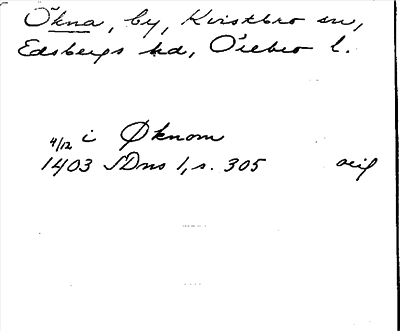 Ökna, by, Kvistbro sn,
Edsbergs hd, Örebro l.
4/12 i Øknom
1403 SDns 1, s. 305